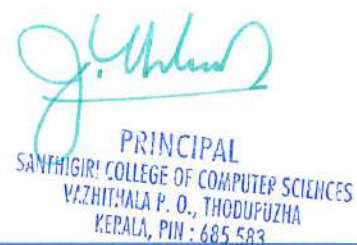 PRINCIPAL
SANTHIGIRI COLLEGE OF COMPUTER SCIENCES
VAZHITHALA P. O., THODUPUZHA
KERALA, PIN : 685 583